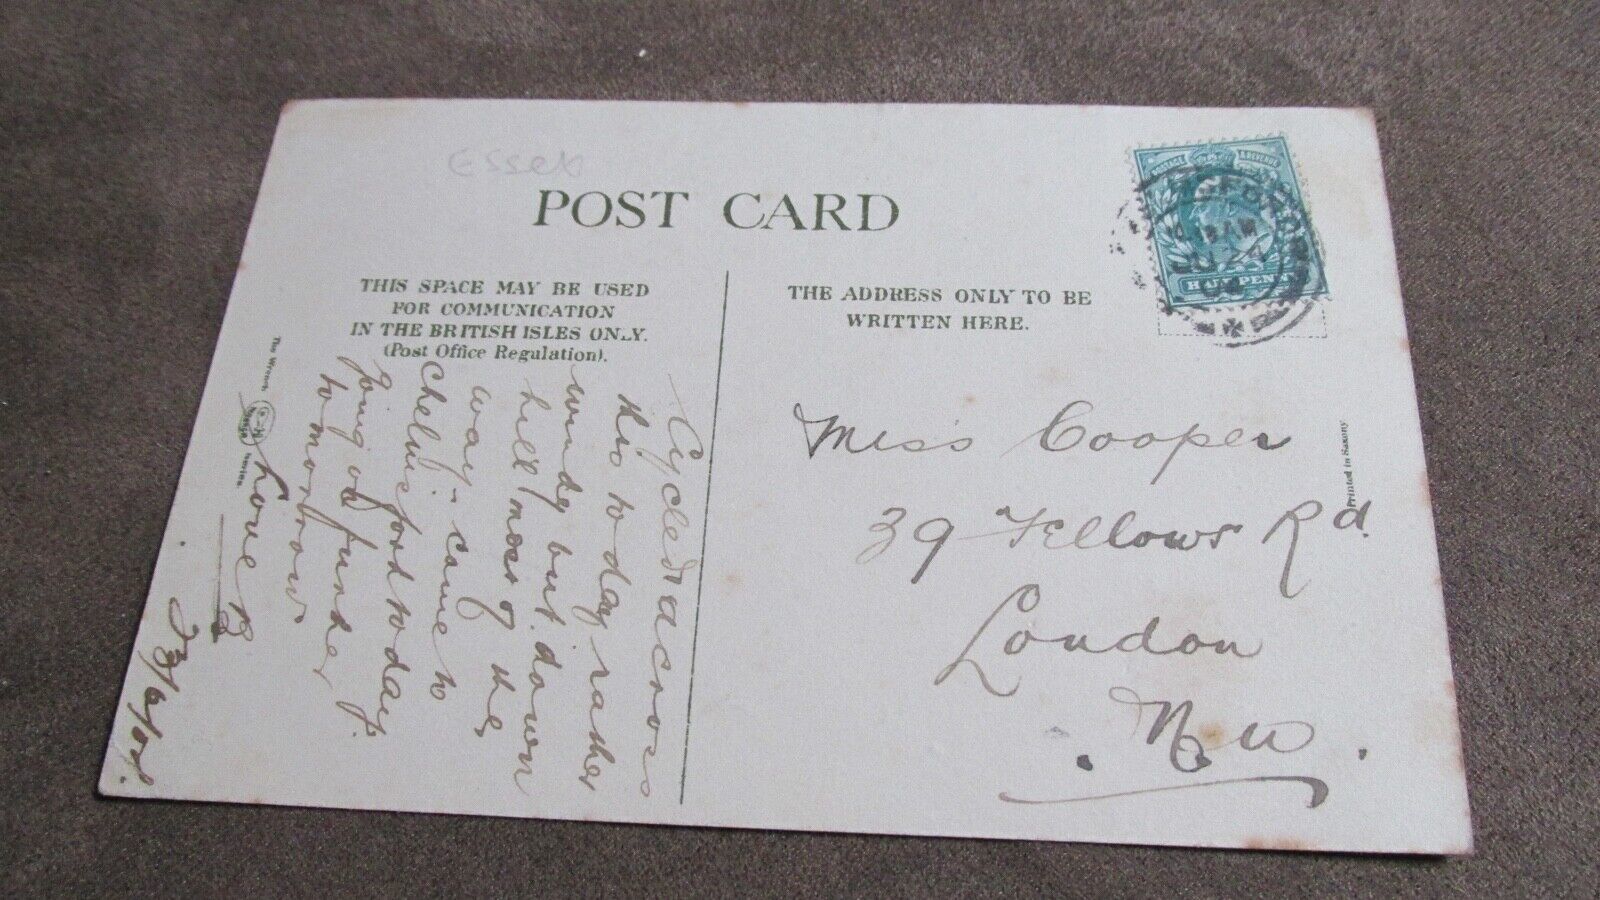 Essex
POST CARD
THIS SPACE MAY BE USED
FOR COMMUNICATION
IN THE BRITISH ISLES ONLY.
(Post Office Regulation).
THE ADDRESS ONLY TO BE
WRITTEN HERE.
POSTAGE & REVENUE
HALF PENNY
Cycled across
this to day rather
windy but down
hill most of the
way - came to
Chelmsford to day.
going on further
to morrow
Love
Miss Cooper
39 Fellows Rd
London
N.W.
The Wrench
Series.
Printed in Saxony